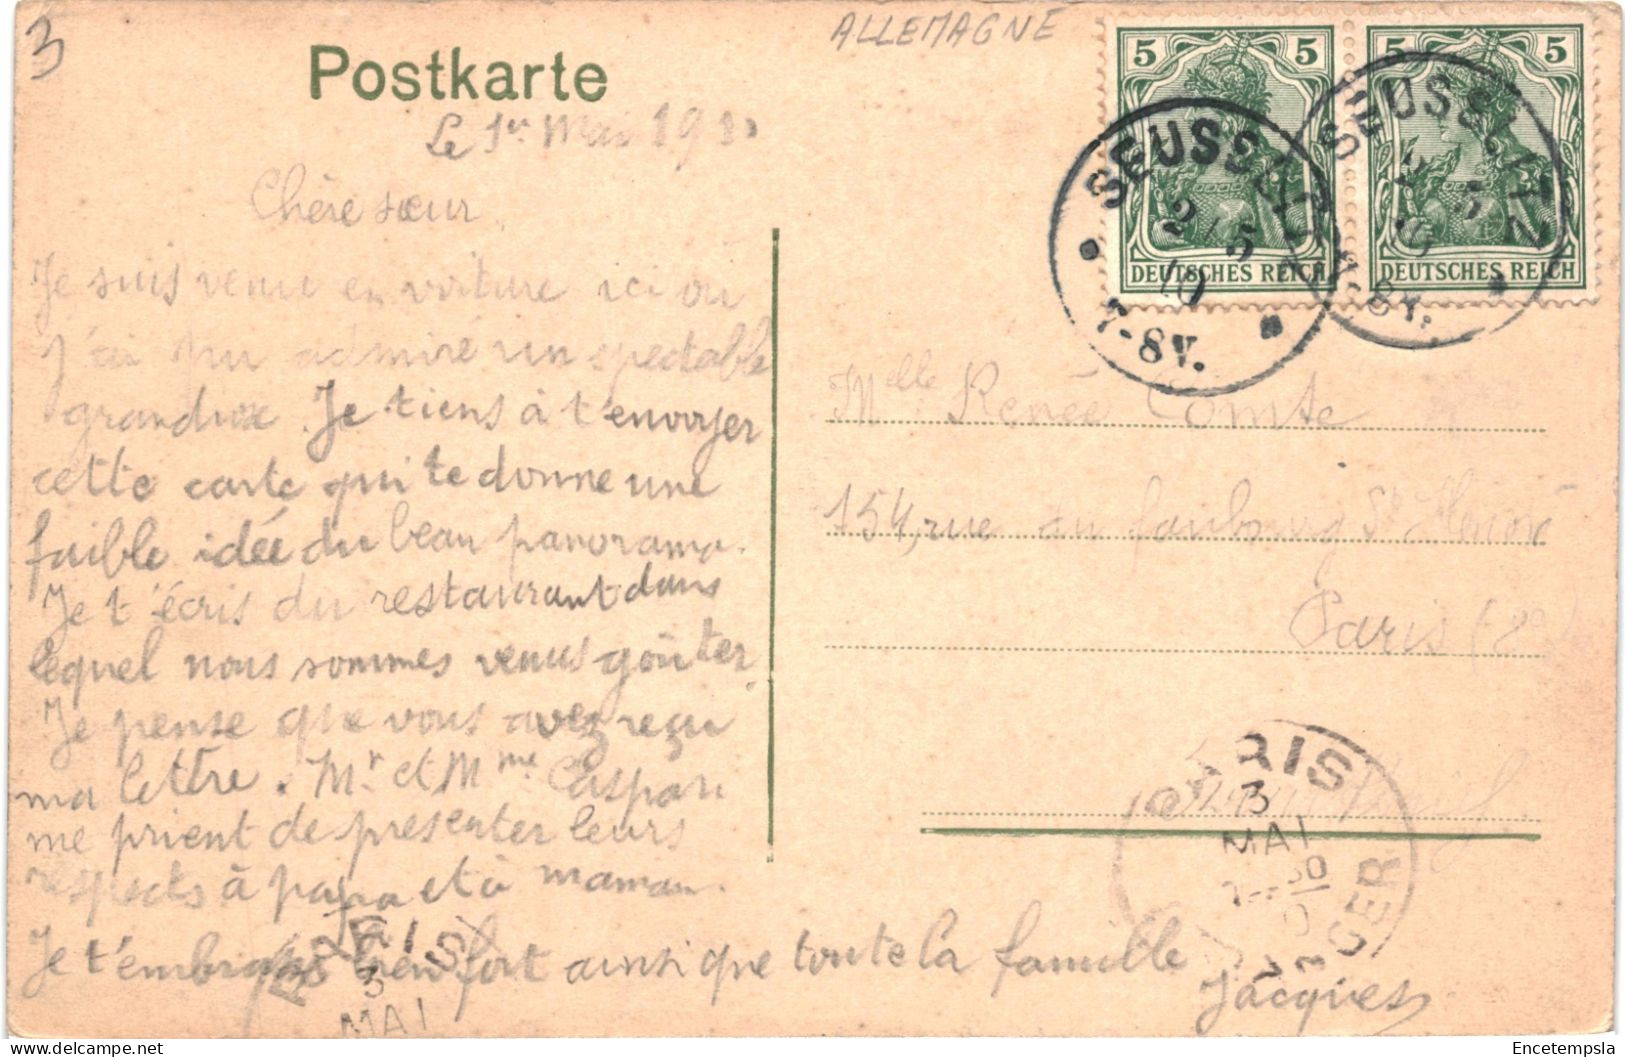 3
ALLEMAGNE
Postkarte
5 5
DEUTSCHES REICH
5 5
DEUTSCHES REICH
SEUSSLITZ
2/5
10
7-8V.
SEUSSLITZ
8V.
Le 1er Mai 1910
Chère sœur
Je suis venu en voiture ici où
j'ai pu admiré un spectable
grandiose. Je tiens à t'envoyer
cette carte qui te donne une
faible idée du beau panorama.
Je t'écris du restaurant dans
lequel nous sommes venus goûter.
Je pense que vous avez reçu
ma lettre. Mr et Mme Caspari
me prient de présenter leurs
respects à papa et à maman.
Je t'embrasse bien fort ainsi que toute la famille
Jacques
Melle Renée Comte
154, rue du faubourg St Honoré
Paris
PARIS
3
MAI
PARIS
3
MAI
Encetempsla